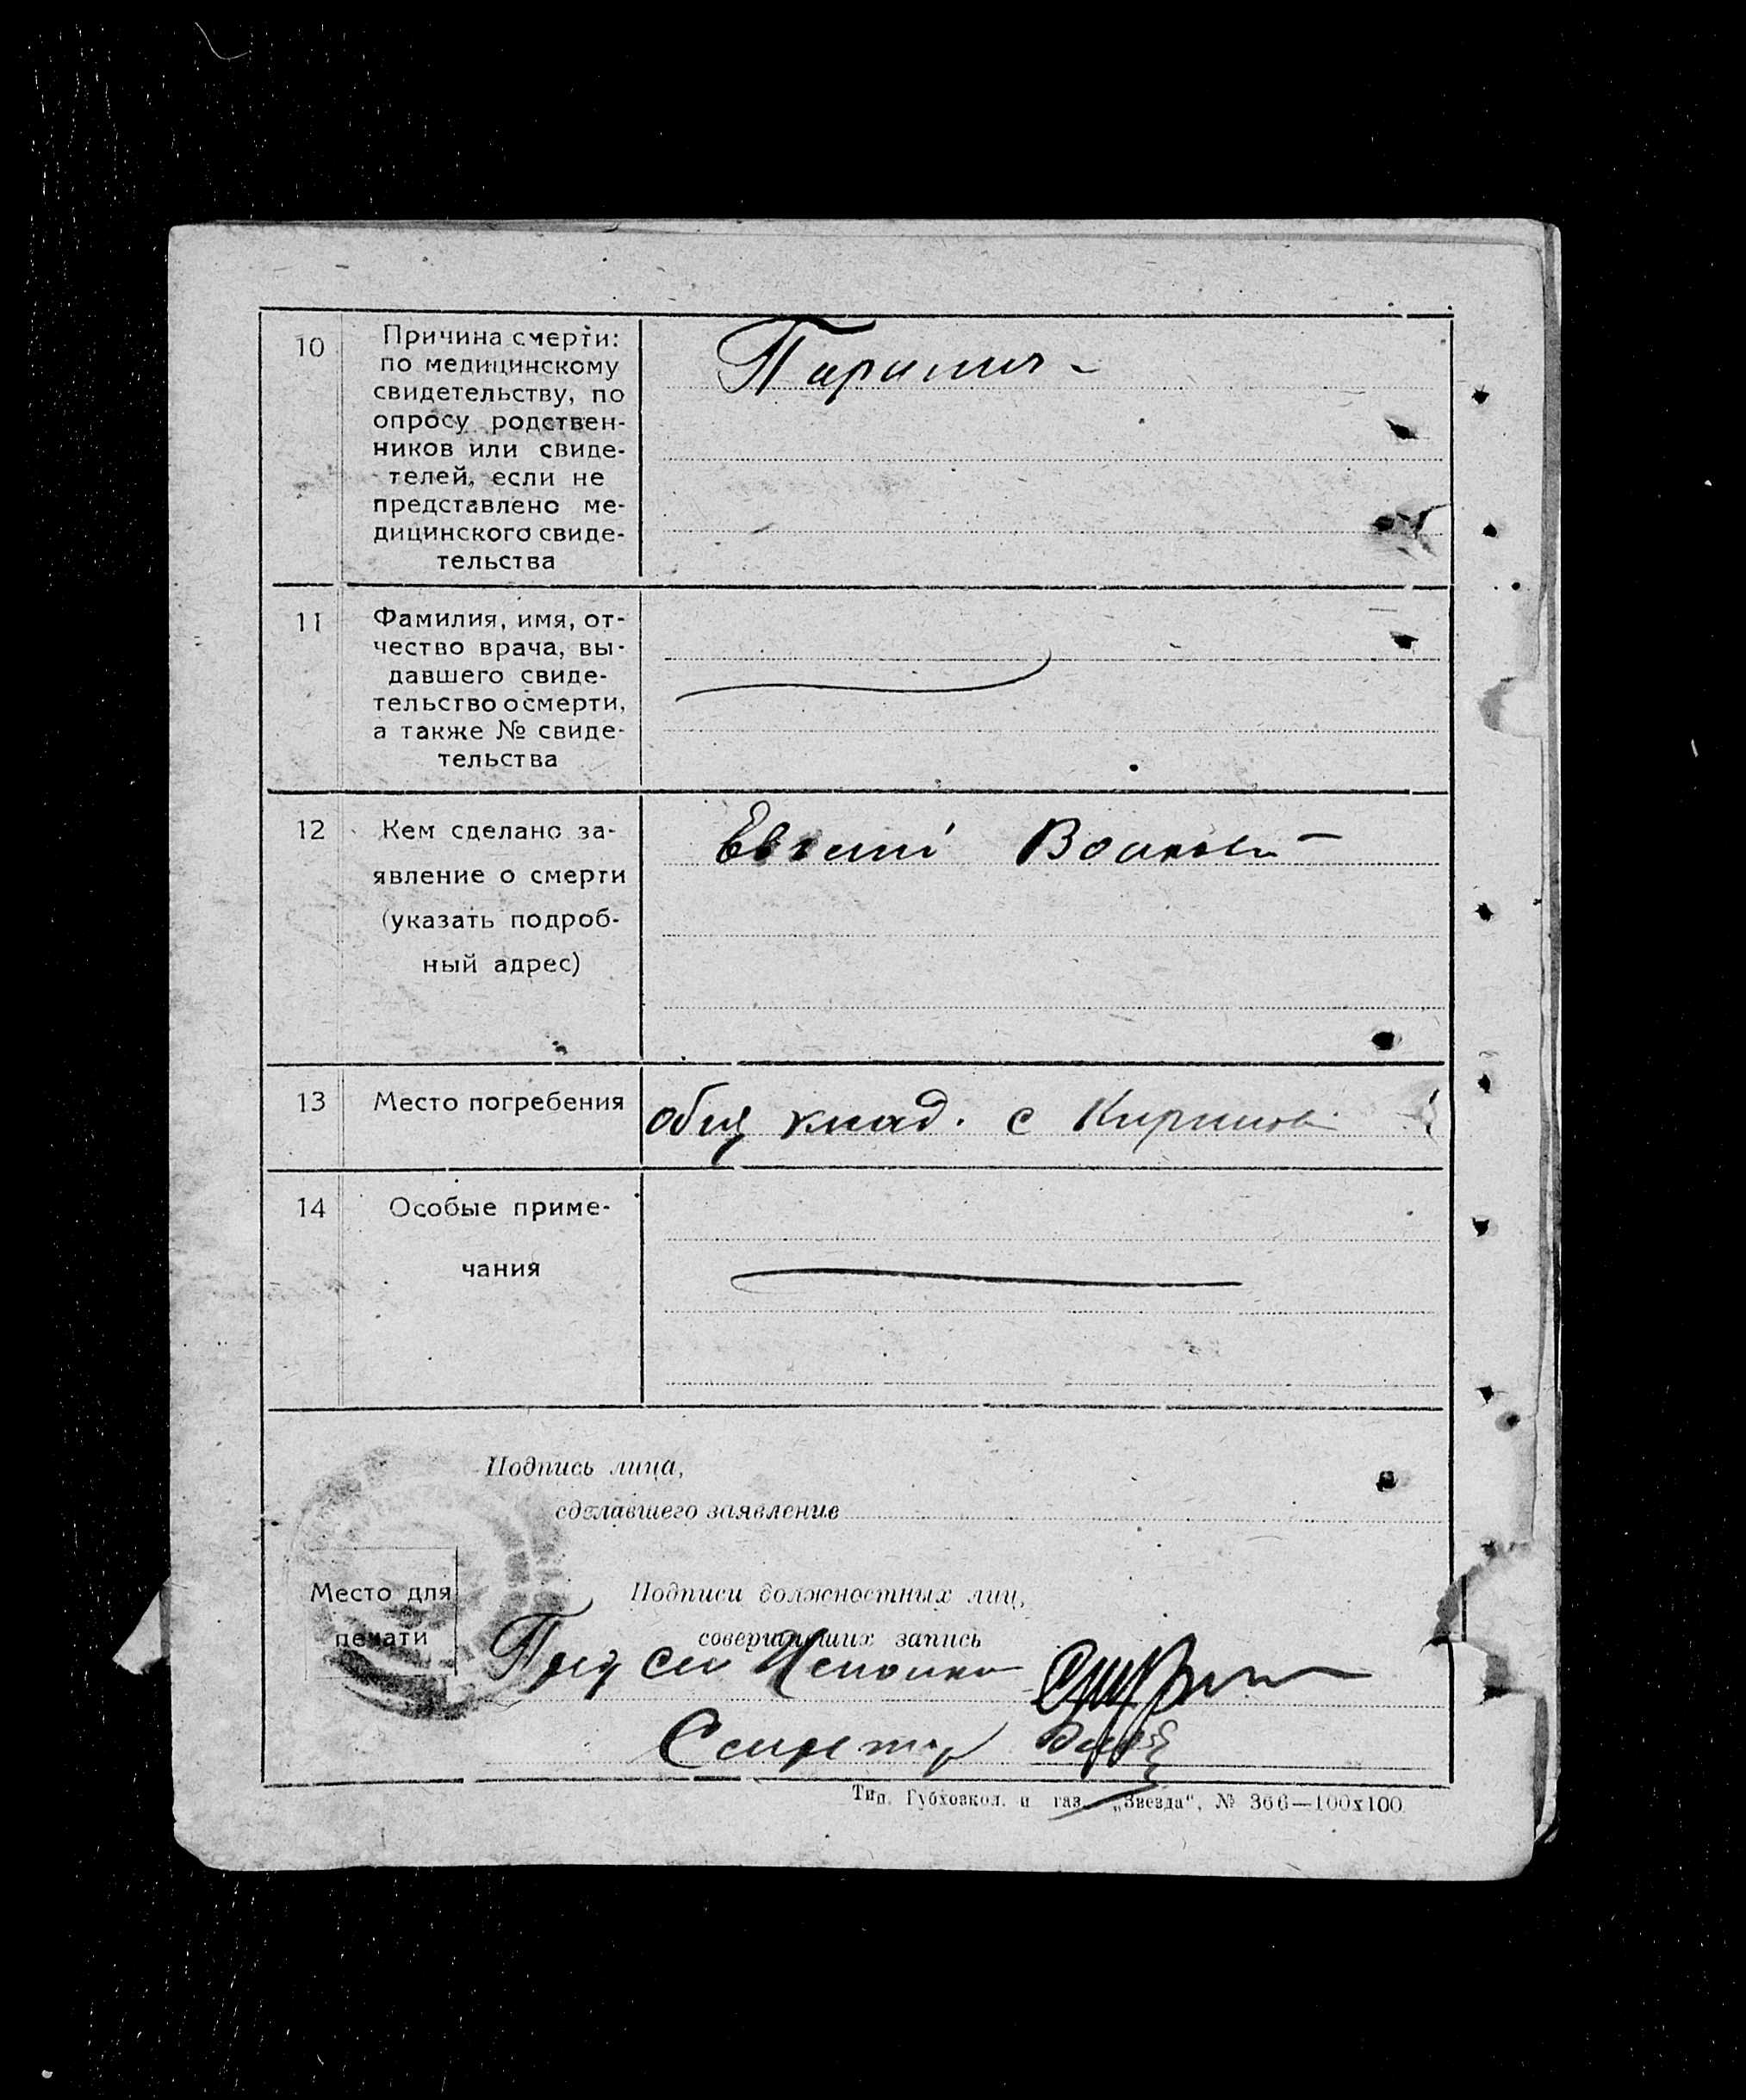 10
Причина смерти:
по медицинскому
свидетельству, по
опросу родствен-
ников или свиде-
телей, если не
представлено ме-
дицинского свиде-
тельства
Паралич
11
Фамилия, имя, от-
чество врача, вы-
давшего свиде-
тельство о смерти,
а также № свиде-
тельства
12
Кем сделано за-
явление о смерти
(указать подроб-
ный адрес)
Евгений
13
Место погребения
общ клад. с
14
Особые приме-
чания
Подпись лица,
сделавшего заявление
Место для
печати
Подписи должностных лиц,
совершивших запись
Секретар
Тип. Губхозкол. и газ. „Звезда“, № 366—100х100